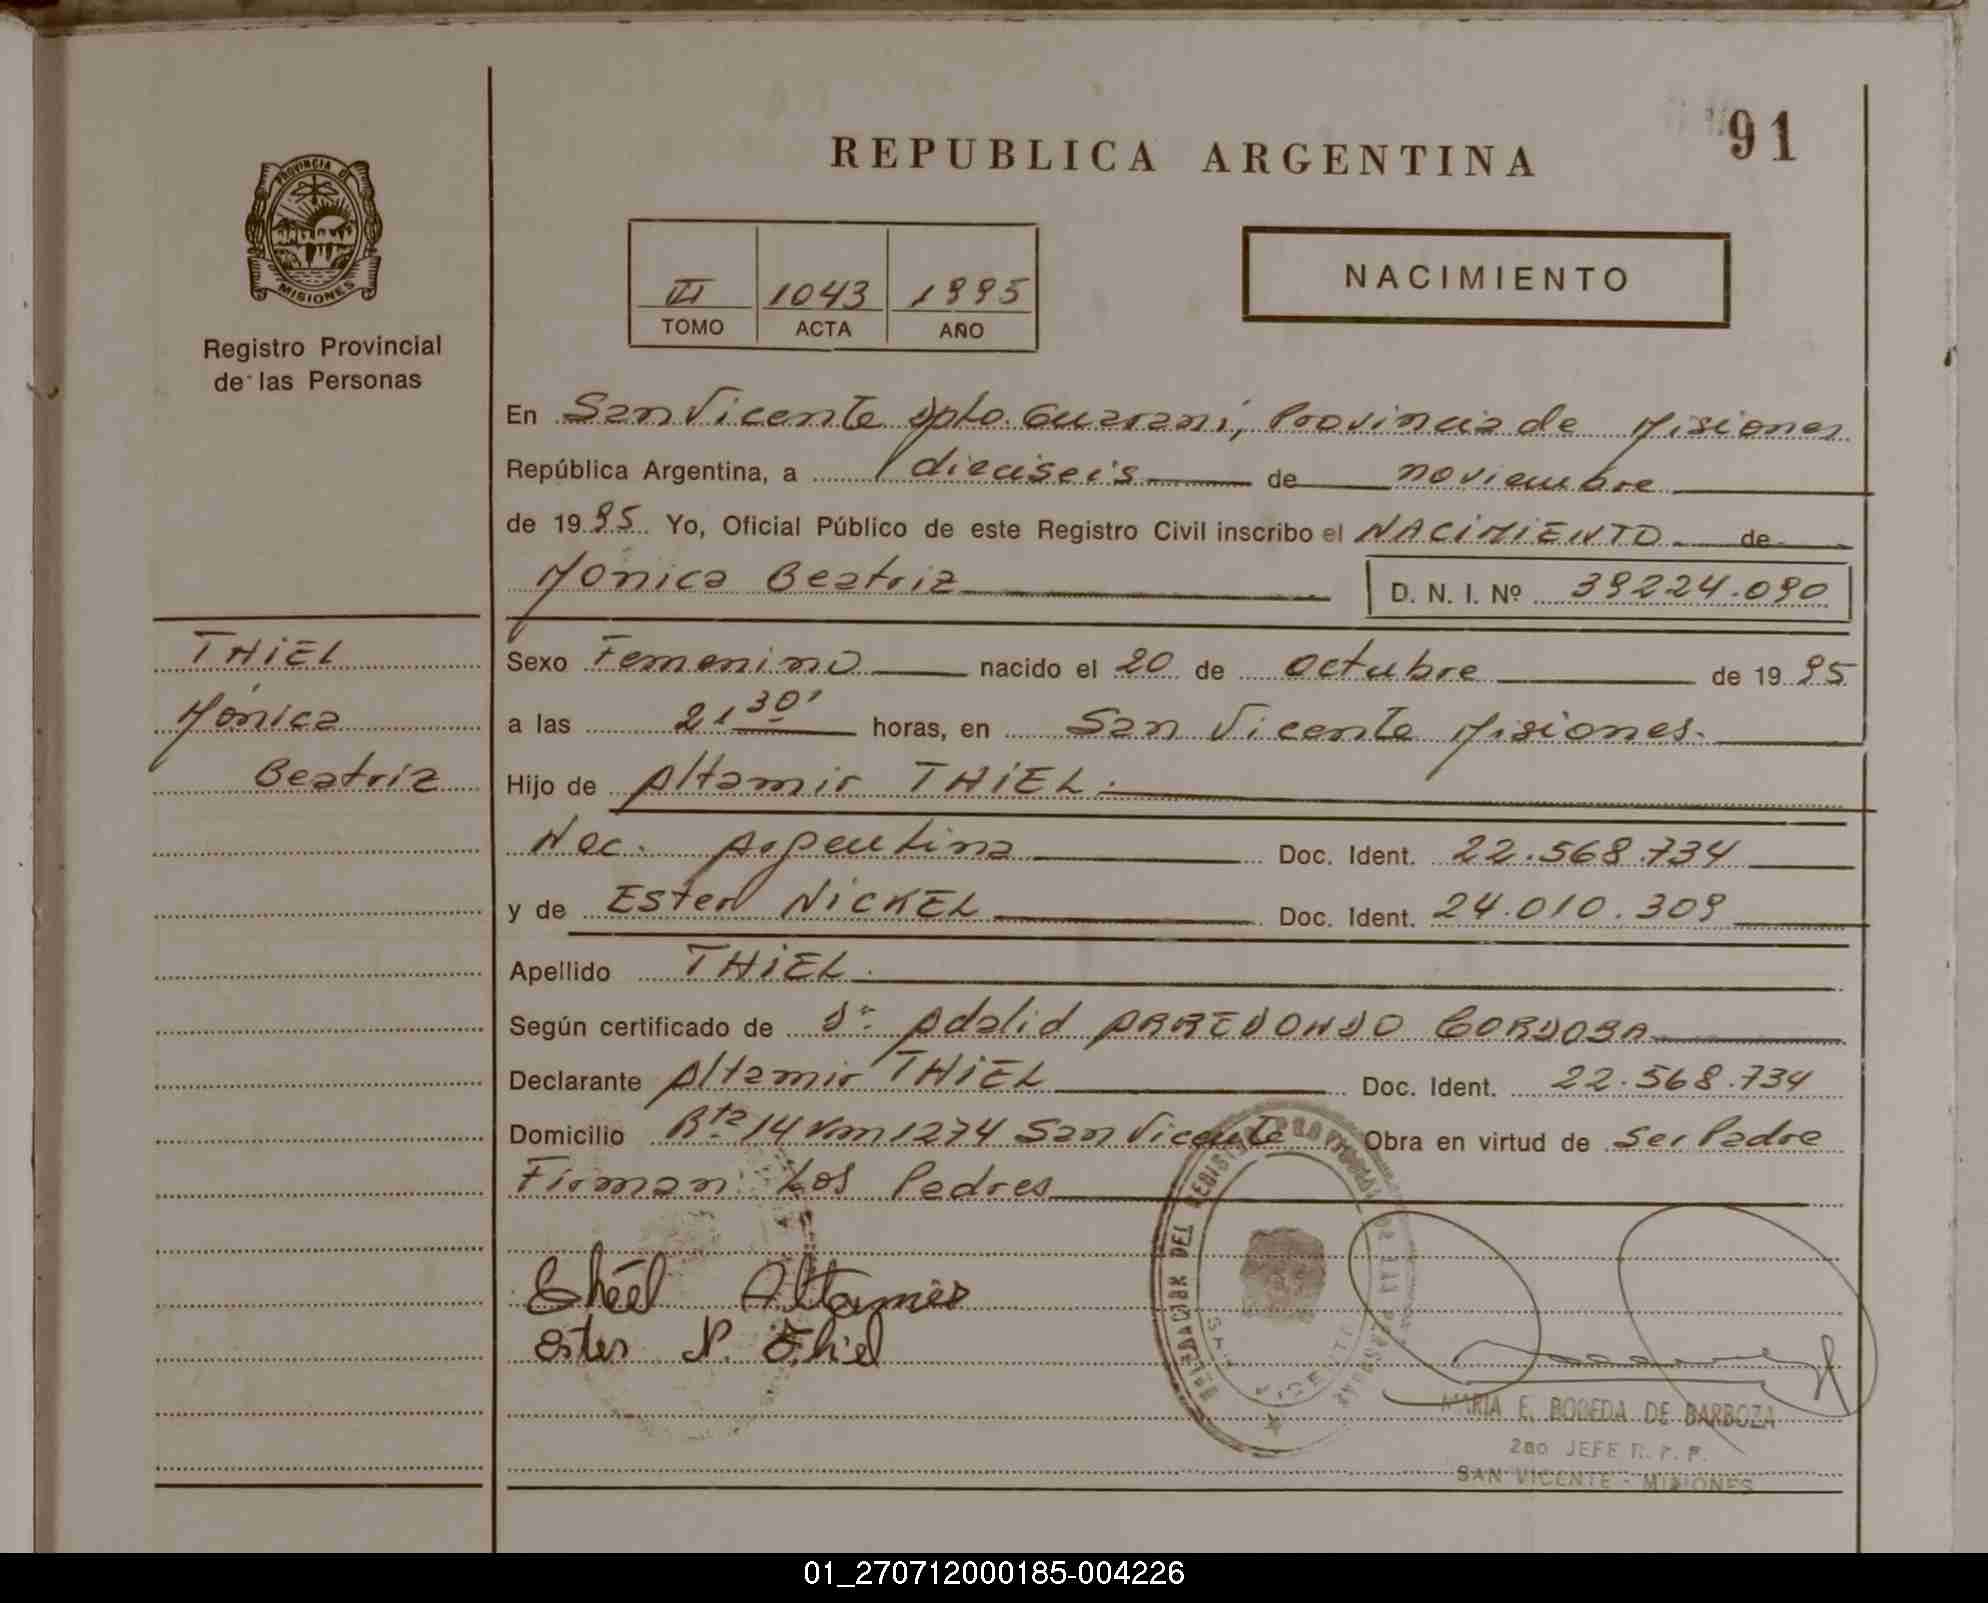 91
REPUBLICA ARGENTINA
PROVINCIA DE
MISIONES
Registro Provincial
de las Personas
VI 1043 1995
TOMO ACTA AÑO
NACIMIENTO
En San Vicente Dpto. Guaraní, Provincia de Misiones
República Argentina, a dieciseis de noviembre
de 1995 Yo, Oficial Público de este Registro Civil inscribo el NACIMIENTO de
Mónica Beatriz D. N. I. Nº 39224.090
THIEL
Mónica
Beatriz
Sexo Femenino nacido el 20 de octubre de 1995
a las 21 30' horas, en San Vicente Misiones.
Hijo de Altamir THIEL.
Nac. Argentina Doc. Ident. 22.568.734
y de Ester NICKEL Doc. Ident. 24.010.309
Apellido THIEL.
Según certificado de Dr. Adalid ARREDONDO CORDOBA
Declarante Altamir THIEL Doc. Ident. 22.568.734
Domicilio Rta 14 Km 1274 San Vicente Obra en virtud de ser Padre
Firman: Los Padres
Thiel Altamir
Ester N. Thiel
DELEGACION DEL REGISTRO PROVINCIAL DE LAS PERSONAS
SAN VICENTE
MARIA E. BOGEDA DE BARBOZA
2do JEFE R. P. P.
SAN VICENTE - MISIONES
01_270712000185-004226